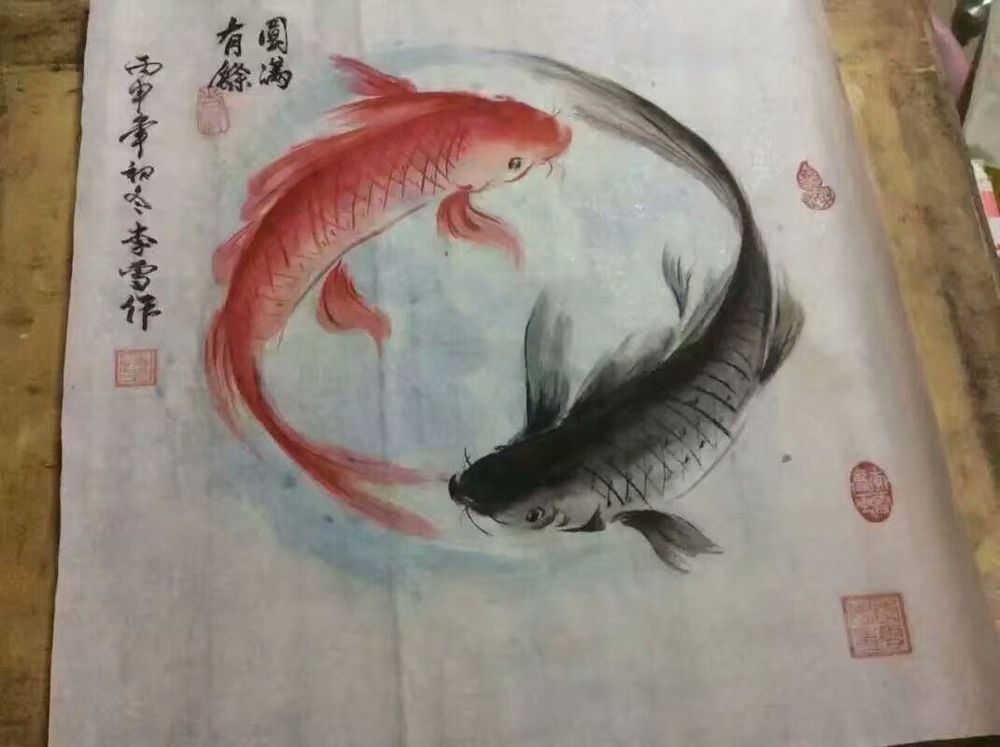 圓滿
有餘
丙申年初冬李雪作